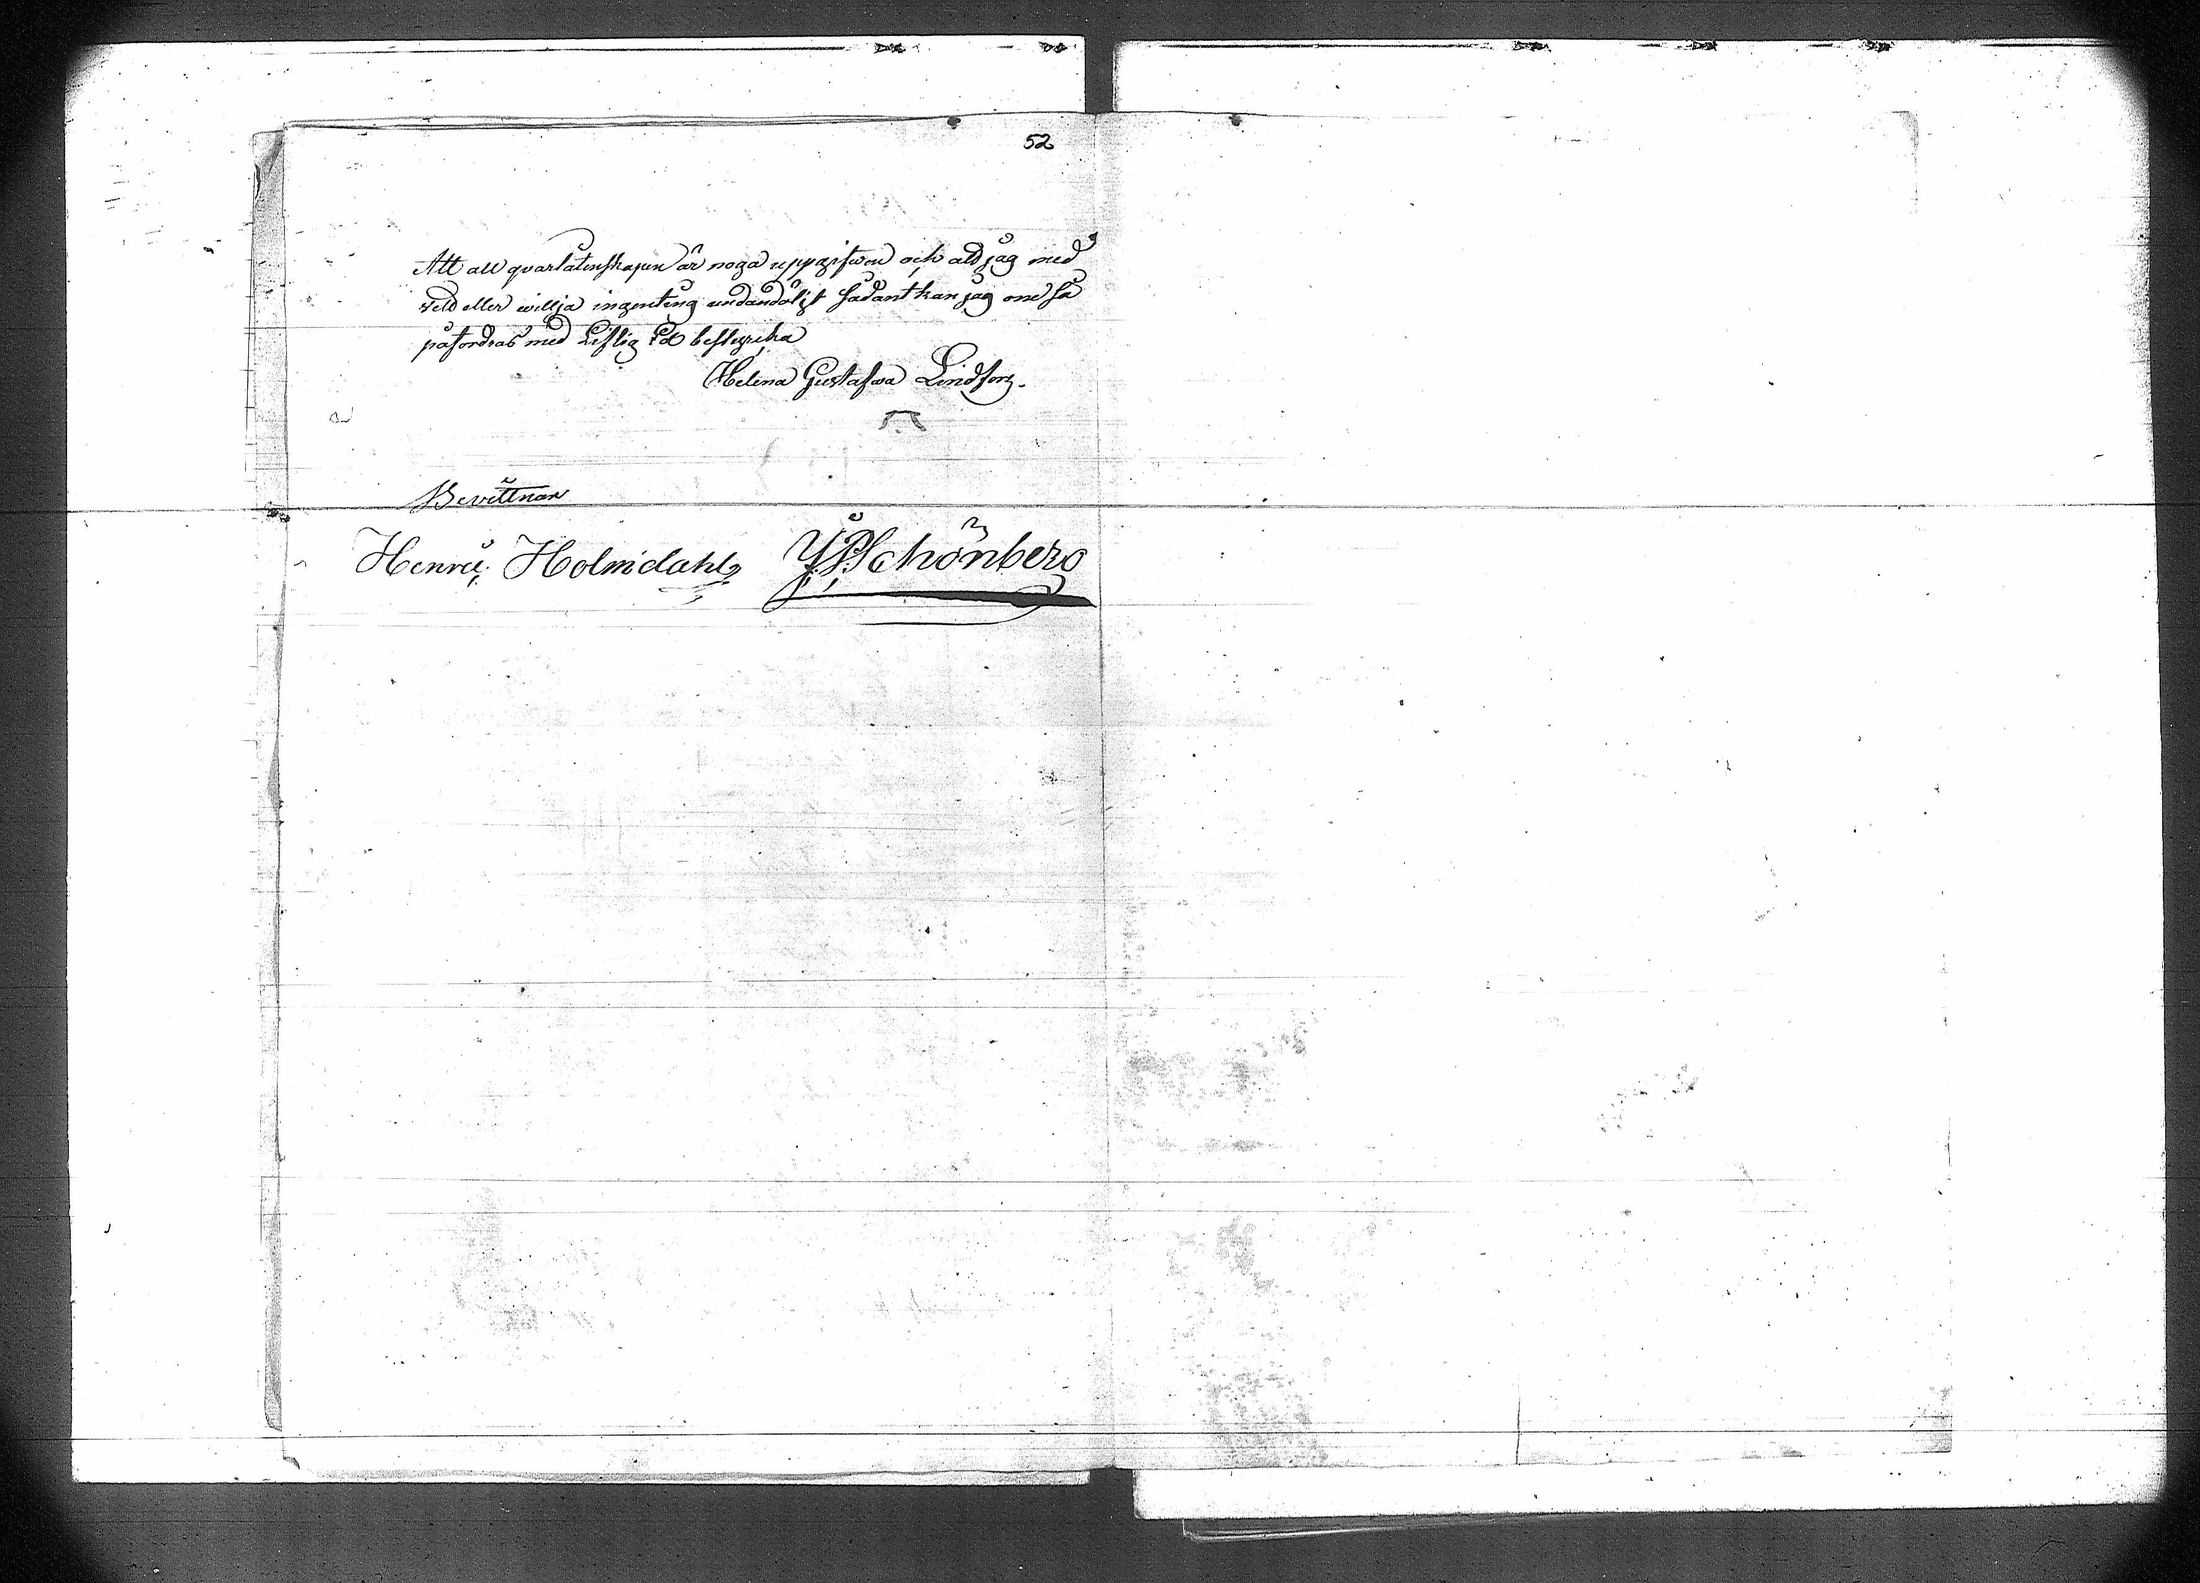 52
Att all qvarlåtenskapen är noga uppgifwen och att jag med
vett eller willja ingenting undandöligt sådant kan jag om så
påfordras med Liflig Ed bestyrcka
Helena Gustafwa Lindfors.
Bevittnar
Henric Holmdahl J.P. Schönberg